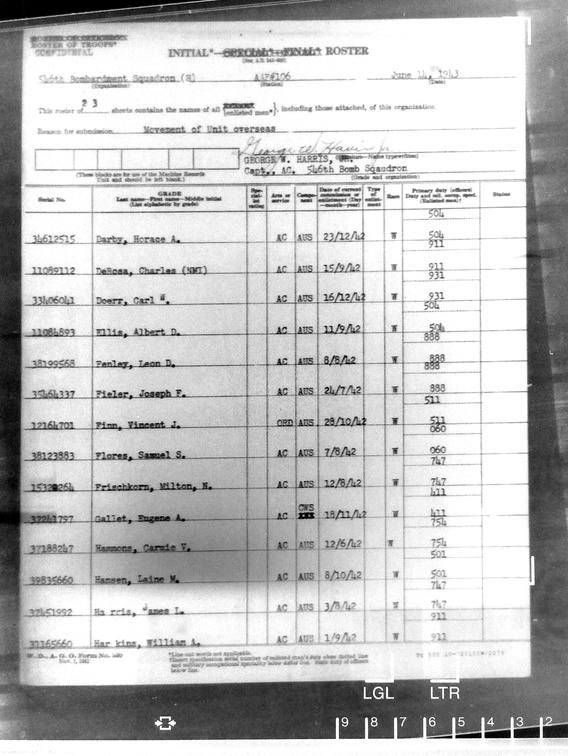 ROSTER OF TROOPS"
CONFIDENTIAL
INITIAL*—SPECIAL*—FINAL* ROSTER
546th Bombardment Squadron (H) AAF#106 June 14, 1943
(Organization) (Station) (Date)
This roster of 23 sheets contains the names of all {enlisted men*}, including those attached, of this organization.
Reason for submission. Movement of Unit overseas
George W. Harris Jr
GEORGE W. HARRIS, JR. (Name typewritten)
Capt., AC. 546th Bomb Squadron
(These blocks are for use of the Machine Records
Unit and should be left blank.) (Grade and organization)
Serial No. GRADE
Last name—First name—Middle initial
(List alphabetically by grade) Spe-
cial-
ist
rating Arm or
service Compo-
nent Date of current
commission or
enlistment (Day
—month—year) Type
of
enlist-
ment Race Primary duty (officers)
Duty and mil. occup. spec.
(Enlisted men)† Status
504
34612515 Darby, Horace A. AC AUS 23/12/42 W 504
911
11089112 DeRosa, Charles (NMI) AC AUS 15/9/42 W 911
931
33406041 Doerr, Carl W. AC AUS 16/12/42 W 931
504
11084893 Ellis, Albert D. AC AUS 11/9/42 W 504
888
38199568 Fenley, Leon D. AC AUS 8/8/42 W 888
888
35464337 Fieler, Joseph F. AC AUS 24/7/42 W 888
511
12164701 Finn, Vincent J. ORD AUS 28/10/42 W 511
060
38123883 Flores, Samuel S. AC AUS 7/8/42 W 060
747
Frischkorn, Milton, N. AC AUS 12/8/42 W 747
411
CWS
Gallet, Eugene A. AC AUS 18/11/42 W 411
754
37188247 Hammons, Carmic V. AC AUS 12/6/42 W 754
501
39835660 Hansen, Laine M. AC AUS 8/10/42 W 501
747
37451992 Ha rris, James L. AC AUS 3/8/42 W 747
911
Har kins, William A. AC AUS 1/9/42 W 911
W. D., A. G. O. Form No.
Nov. 1, 1942
*Line out words not applicable.
LGL LTR
9 8 7 6 5 4 3 2